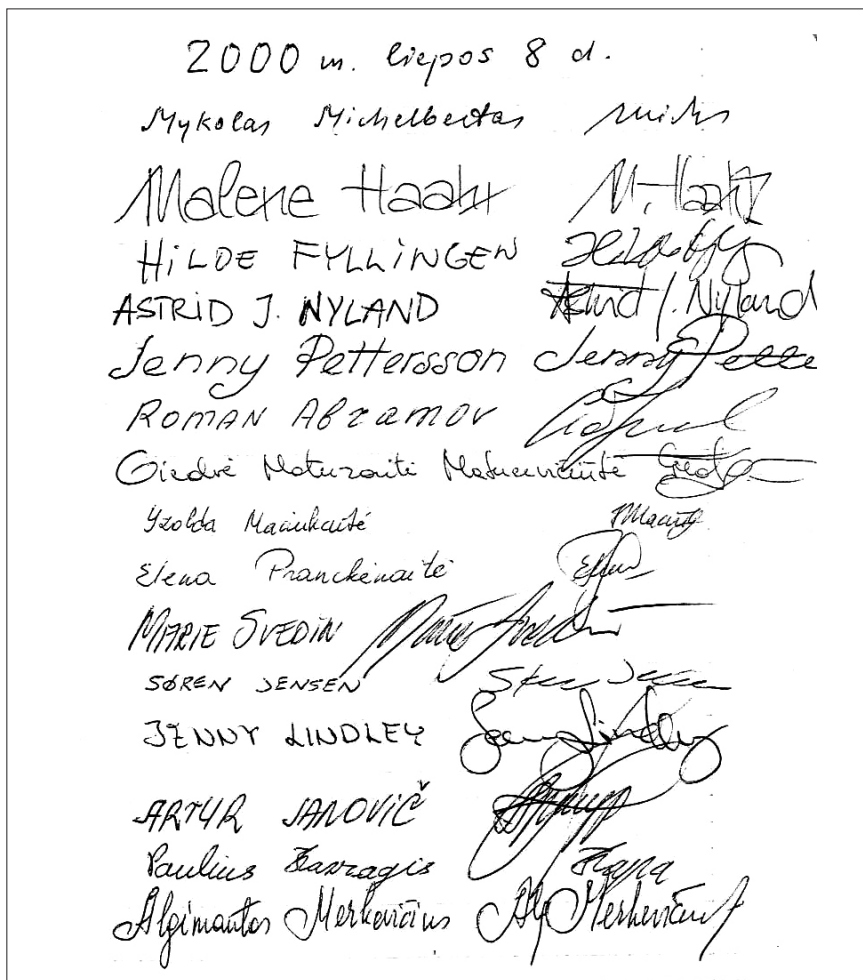 2000 m. liepos 8 d.
Mykolas Michelbertas
Malene Haahr M. Haahr
HILDE FYLLINGEN
ASTRID J. NYLAND Astrid J. Nyland
Jenny Pettersson Jenny Pette
ROMAN ABRAMOV
Giedrė Motuzaitė Matuzevičiūtė
Yzolda Mačiukaitė
Elena Pranckėnaitė
MARIE SVEDIN
SØREN JENSEN
JENNY LINDLEY Jenny Lindley
ARTUR JANOVIČ
Paulius
Algimantas Merkevičius Alg Merkevičius